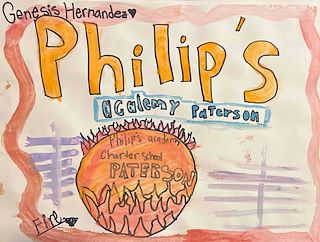 Genesis Hernandez♥
Philip's
acalemy Paterson
Philip's academy
Charter school
PATERSON